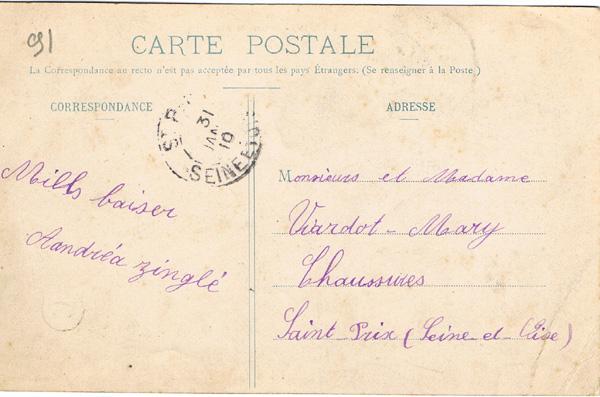 91
CARTE POSTALE
La Correspondance au recto n'est pas acceptée par tous les pays Étrangers. (Se renseigner à la Poste)
CORRESPONDANCE
ADRESSE
ST P
31
JAN
10
SEINE ET O
Mills baiser
Aandréa Zinglé
Monsieurs et Madame
Viardot - Mary
Chaussures
Saint Prix (Seine et Oise)